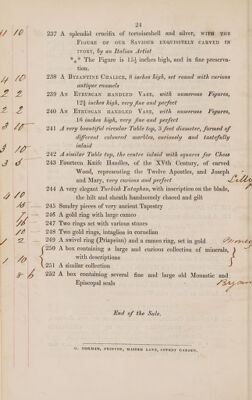 24
11 10 237 A splendid crucifix of tortoiseshell and silver, WITH THE
FIGURE OF OUR SAVIOUR EXQUISITELY CARVED IN
IVORY, by an Italian Artist
*** The Figure is 15½ inches high, and in fine preserva-
tion.
4 10 238 A BYZANTINE CHALICE, 8 inches high, set round with curious
antique enamels
2 2 239 AN ETRUSCAN HANDLED VASE, with numerous Figures,
12½ inches high, very fine and perfect
2 2 240 AN ETRUSCAN HANDLED VASE, with numerous Figures,
16 inches high, very fine and perfect
241 A very beautiful circular Table top, 3 feet diameter, formed of
different coloured marbles, curiously and tastefully
inlaid
3 10 242 A similar Table top, the centre inlaid with squares for Chess
243 Fourteen Knife Handles, of the XVth Century, of carved
Wood, representing the Twelve Apostles, and Joseph
and Mary, very curious and perfect
244 A very elegant Turkish Yataghan, with inscription on the blade,
the hilt and sheath handsomely chased and gilt
245 Sundry pieces of very ancient Tapestry
246 A gold ring with large cameo
247 Two rings set with various stones
248 Two gold rings, intaglios in cornelian
1 2 249 A swivel ring (Priapeian) and a cameo ring, set in gold
250 A box containing a large and curious collection of minerals,
with descriptions
1 10 251 A similar collection
8 6 252 A box containing several fine and large old Monastic and
Episcopal seals
End of the Sale.
G. NORMAN, PRINTER, MAIDEN LANE, COVENT GARDEN.